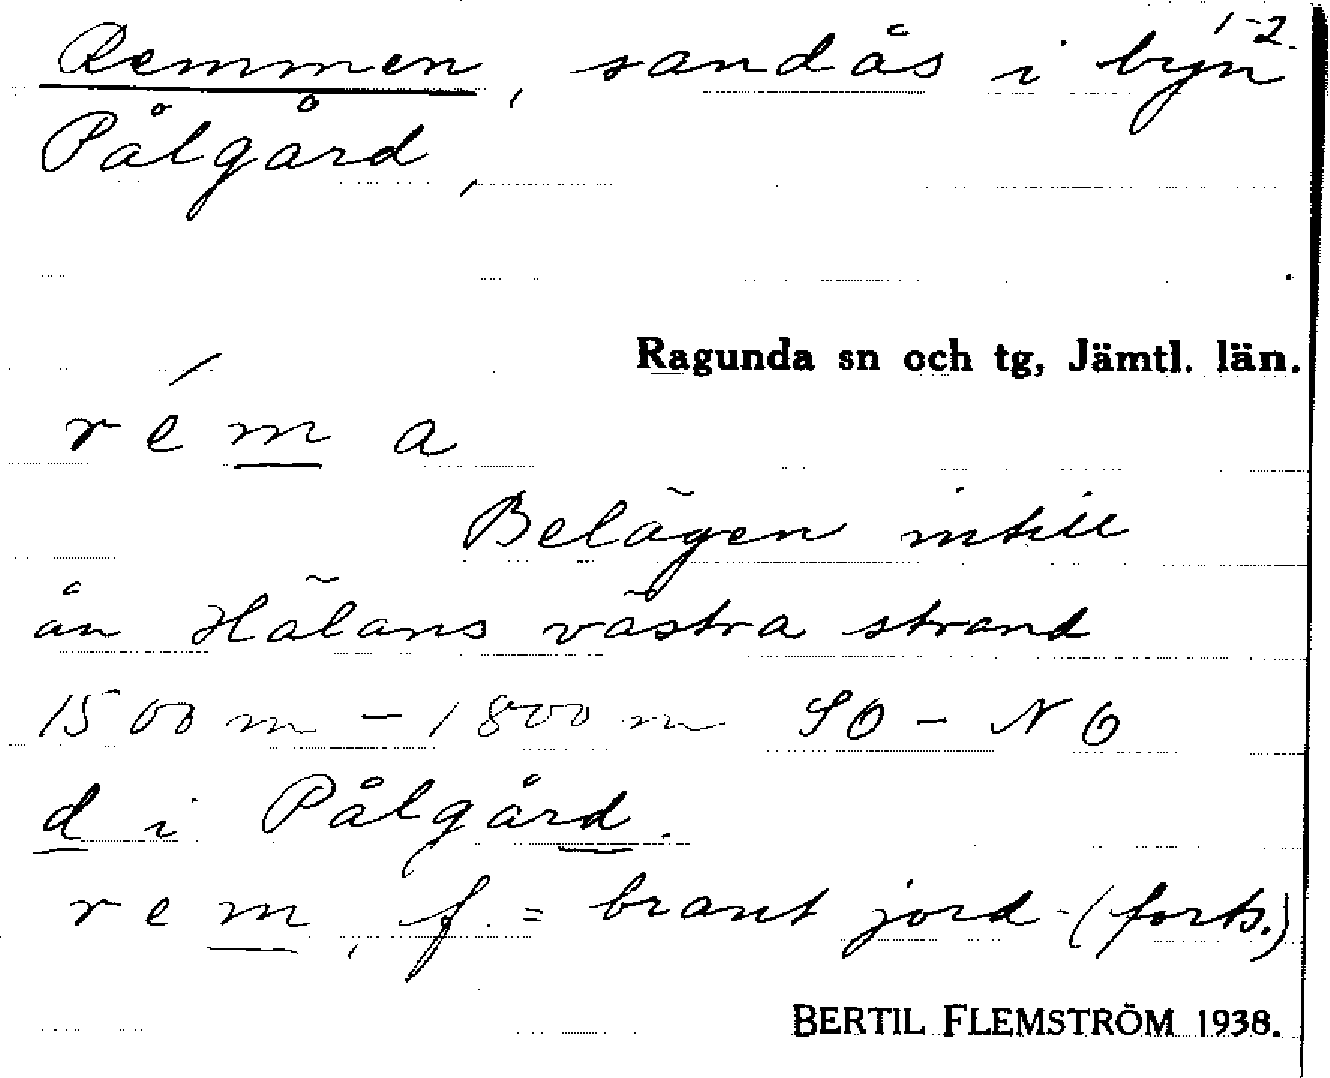 1-2.
Remmen, sandås i byn
Pålgård,
Ragunda sn och tg, Jämtl. län.
r é m a
Belägen intill
ån Hålans västra strand
1500 m - 1800 m SO - NO
d i Pålgård.
r e m, f. = brant jord - (forts.)
BERTIL FLEMSTRÖM 1938.